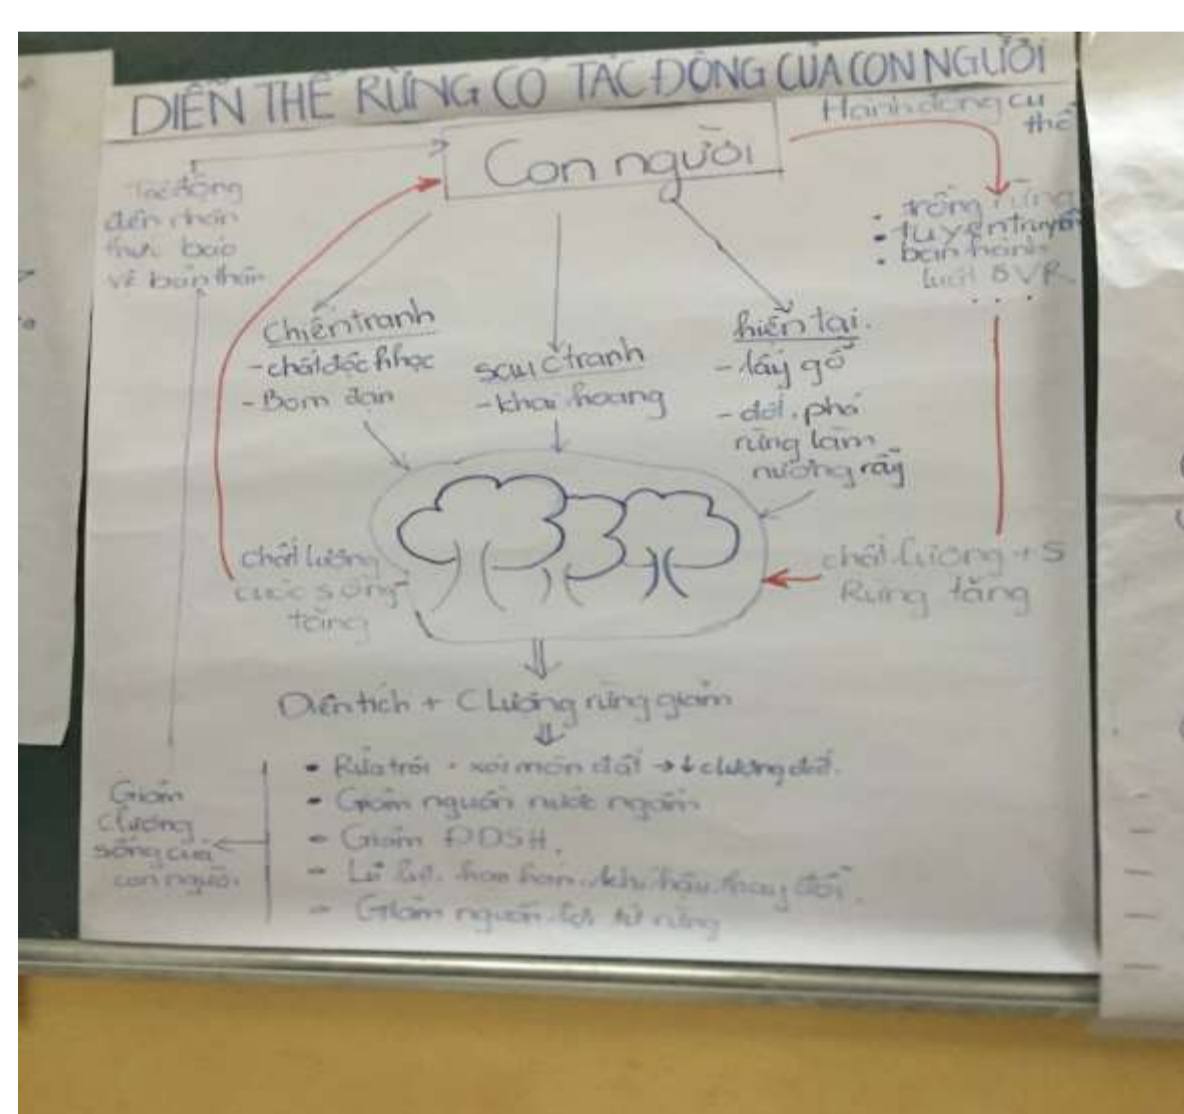 DIỄN THẾ RỪNG CÓ TÁC ĐỘNG CỦA CON NGƯỜI
Con người
Hành động cụ
thể
Tác động
đến nhận
thức bảo
vệ bản thân
• trồng rừng
• tuyên truyền
• ban hành
luật BVR
...
Chiến tranh
- chất độc hhọc
- Bom đạn
sau ctranh
- khai hoang
hiện tại.
- lấy gỗ
- đốt, phá
rừng làm
nương rẫy
chất lượng
cuộc sống
tăng
chất lượng + S
Rừng tăng
Diện tích + Clượng rừng giảm
• Rửa trôi, xói mòn đất → ↓ clượng đất.
• Giảm nguồn nước ngầm
- Giảm ĐDSH.
- Lũ lụt, hạn hán, khí hậu thay đổi.
- Giảm nguồn lợi từ rừng
Giảm
clượng
sống của
con người